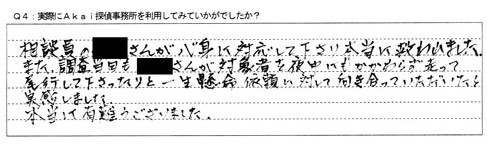 Q4:実際にAkai探偵事務所を利用してみていかがでしたか?
相談員の さんが八身に対応して下さり本当に救われました。
また、調査当日も さんが対象者を夜中にもかかわらず走って
尾行して下さったりと一生懸命依頼に対して向き合っていただいたと
実感しました。
本当に有難うございました。